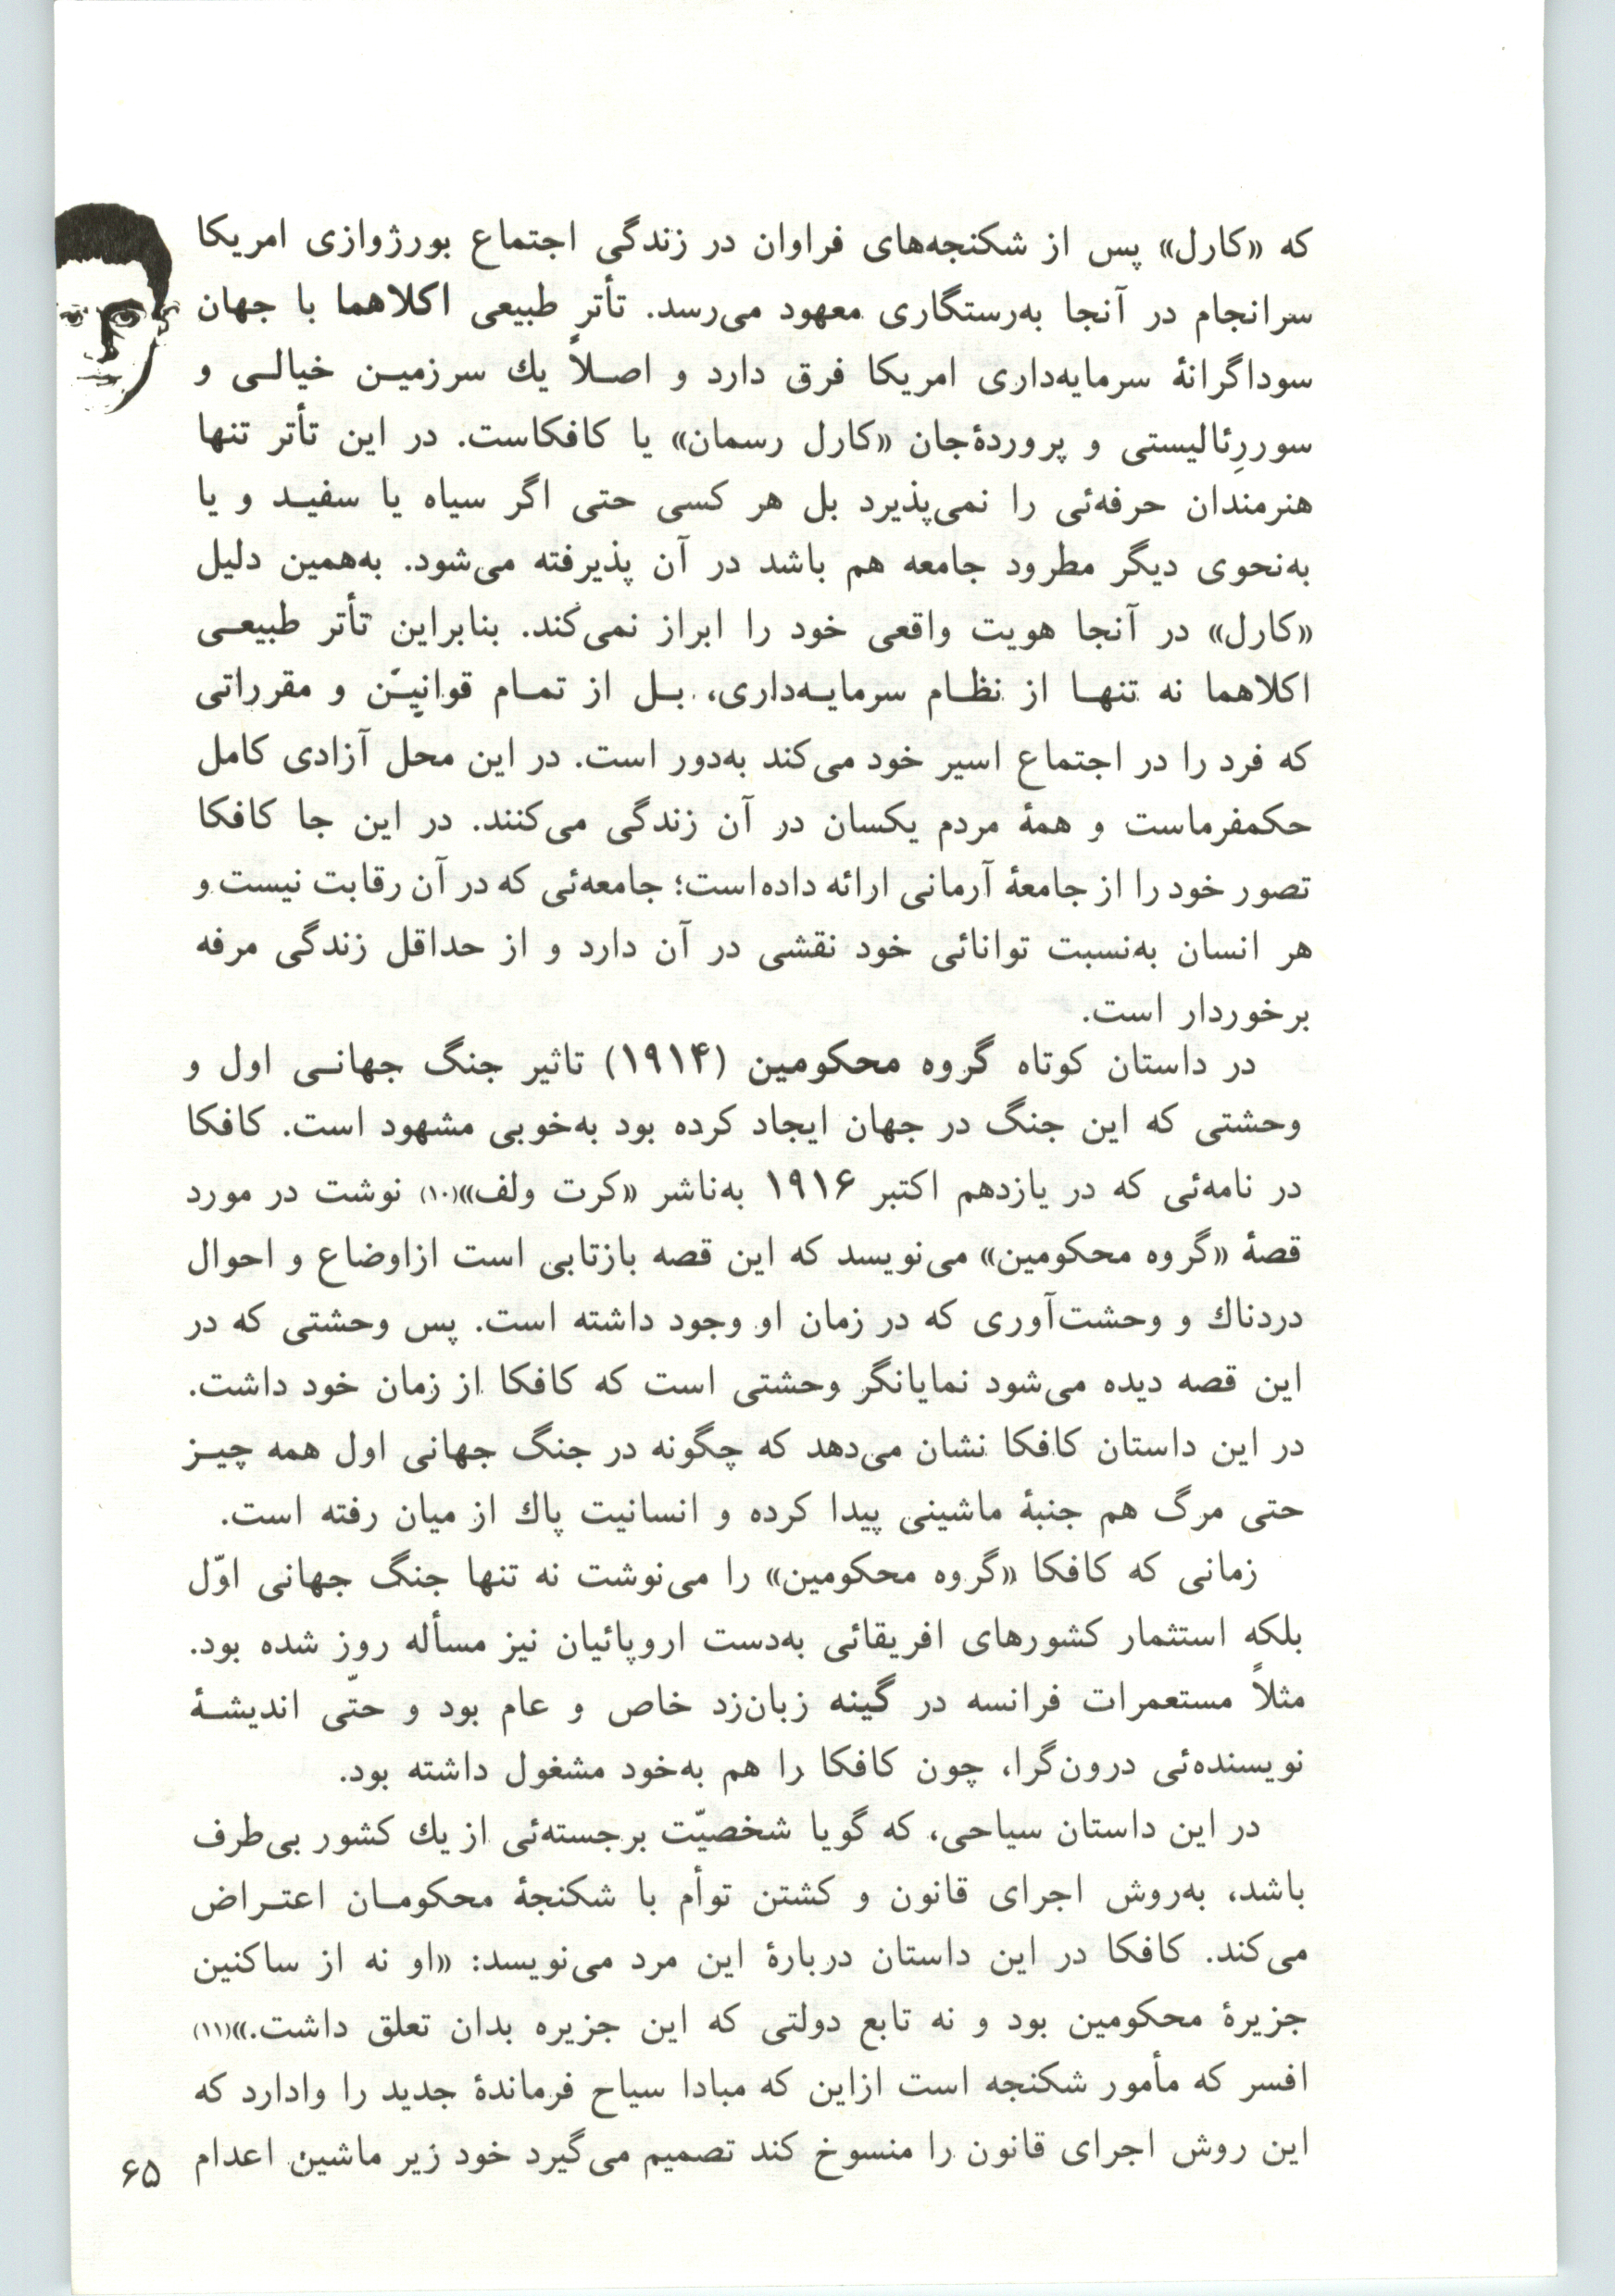 که «کارل» پس از شکنجه‌های فراوان در زندگی اجتماع بورژوازی امریکا
سرانجام در آنجا به‌رستگاری معهود می‌رسد. تأترِ طبیعی اکلاهما با جهان
سوداگرانهٔ سرمایه‌داری امریکا فرق دارد و اصلاً یك سرزمین خیالی و
سوررِئالیستی و پروردهٔ‌جان «کارل رسمان» یا کافکاست. در این تأتر تنها
هنرمندان حرفه‌ئی را نمی‌پذیرد بل هر کسی حتی اگر سیاه یا سفید و یا
به‌نحوی دیگر مطرود جامعه هم باشد در آن پذیرفته می‌شود. به‌همین دلیل
«کارل» در آنجا هویت واقعی خود را ابراز نمی‌کند. بنابراین تأتر طبیعی
اکلاهما نه تنها از نظام سرمایه‌داری، بل از تمام قوانین و مقرراتی
که فرد را در اجتماع اسیر خود می‌کند به‌دور است. در این محل آزادی کامل
حکمفرماست و همهٔ مردم یکسان در آن زندگی می‌کنند. در این جا کافکا
تصور خود را از جامعهٔ آرمانی ارائه داده‌است؛ جامعه‌ئی که در آن رقابت نیست و
هر انسان به‌نسبت توانائی خود نقشی در آن دارد و از حداقل زندگی مرفه
برخوردار است.
در داستان کوتاه گروه محکومین (۱۹۱۴) تاثیر جنگ جهانی اول و
وحشتی که این جنگ در جهان ایجاد کرده بود به‌خوبی مشهود است. کافکا
در نامه‌ئی که در یازدهم اکتبر ۱۹۱۶ به‌ناشر «کرت ولف»(۱۰) نوشت در مورد
قصهٔ «گروه محکومین» می‌نویسد که این قصه بازتابی است ازاوضاع و احوال
دردناك و وحشت‌آوری که در زمان او وجود داشته است. پس وحشتی که در
این قصه دیده می‌شود نمایانگر وحشتی است که کافکا از زمان خود داشت.
در این داستان کافکا نشان می‌دهد که چگونه در جنگ جهانی اول همه چیز
حتی مرگ هم جنبهٔ ماشینی پیدا کرده و انسانیت پاك از میان رفته است.
زمانی که کافکا «گروه محکومین» را می‌نوشت نه تنها جنگ جهانی اوّل
بلکه استثمار کشورهای افریقائی به‌دست اروپائیان نیز مسأله روز شده بود.
مثلاً مستعمرات فرانسه در گینه زبان‌زد خاص و عام بود و حتّی اندیشهٔ
نویسنده‌ئی درون‌گرا، چون کافکا را هم به‌خود مشغول داشته بود.
در این داستان سیاحی، که گویا شخصیّت برجسته‌ئی از یك کشور بی‌طرف
باشد، به‌روش اجرای قانون و کشتن توأم با شکنجهٔ محکومان اعتراض
می‌کند. کافکا در این داستان دربارهٔ این مرد می‌نویسد: «او نه از ساکنین
جزیرهٔ محکومین بود و نه تابع دولتی که این جزیره بدان تعلق داشت.»(۱۱)
افسر که مأمور شکنجه است ازاین که مبادا سیاح فرماندهٔ جدید را وادارد که
این روش اجرای قانون را منسوخ کند تصمیم می‌گیرد خود زیر ماشین اعدام
۶۵